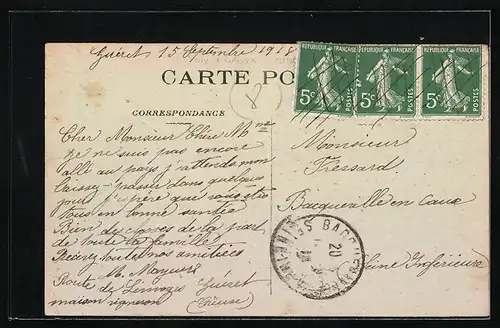 Guéret 15 Septembre 1918
CARTE PO
REPUBLIQUE FRANÇAISE
5c
POSTES
REPUBLIQUE FRANÇAISE
5c
POSTES
REPUBLIQUE FRANÇAISE
5c
POSTES
8
CORRESPONDANCE
Cher Monsieur Chère Mme
je ne suis pas encore
allé au pays j'attends mon
laissez-passer dans quelques
jours j'espère que vous êtes
tous en bonne santée
Bien des choses de la part
de toute la famille
Recevez toutes nos amitiées
Route de Limoges Guéret
maison vigneron (Creuse)
Monsieur
Fressard
Bacqueville en Caux
Seine Inférieure
20